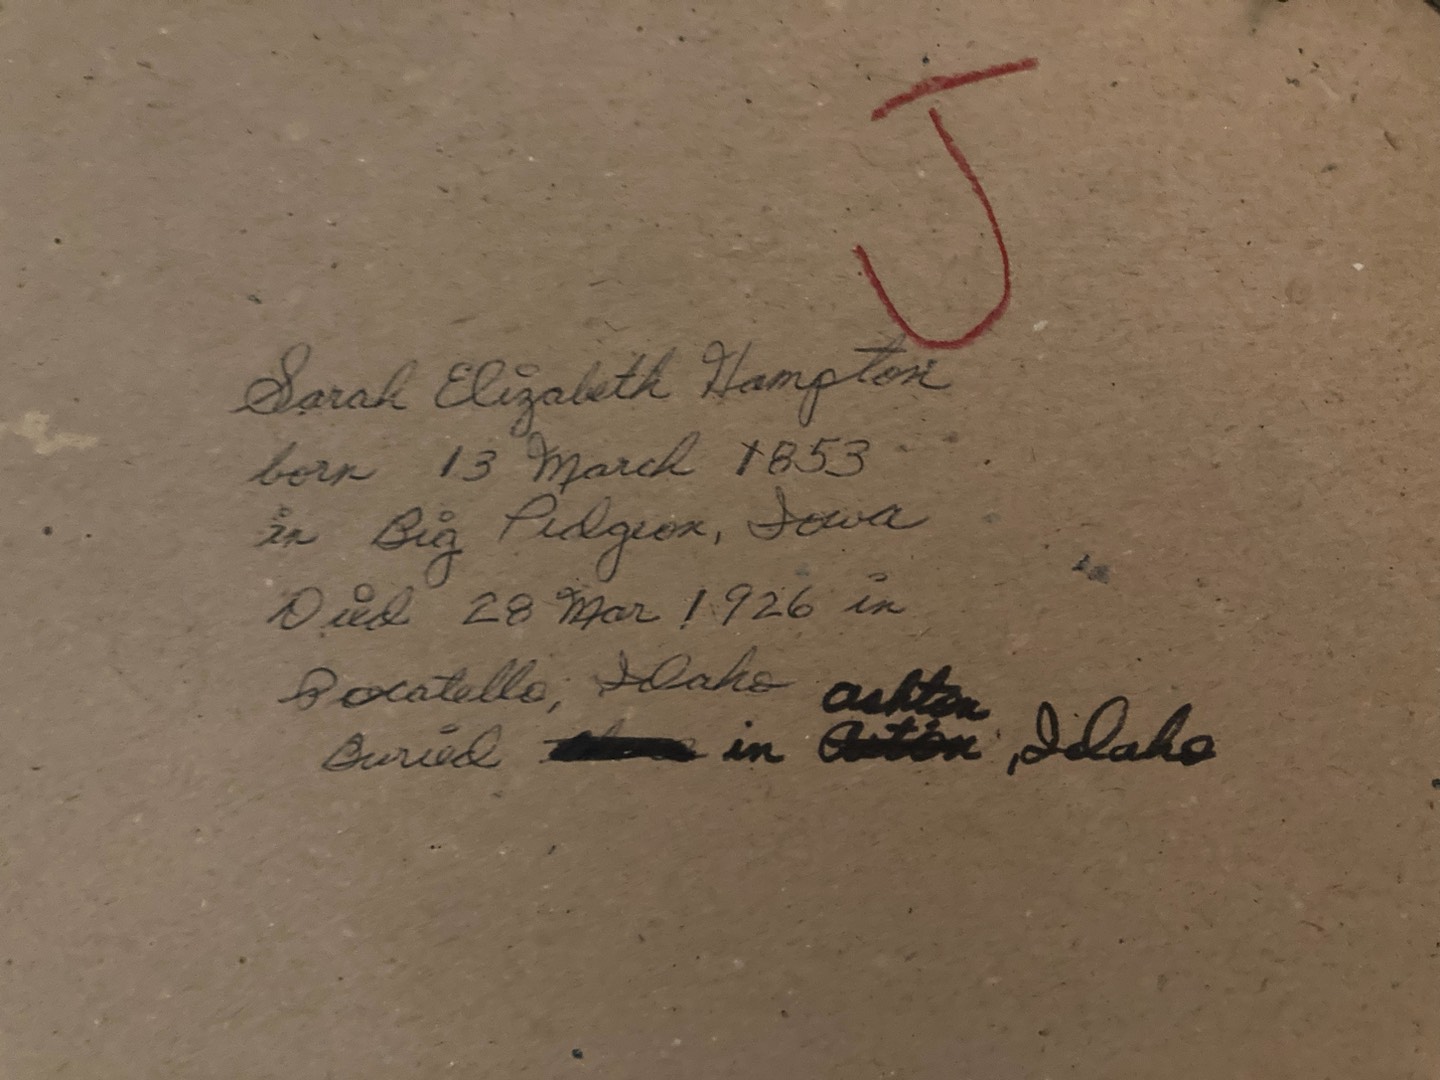 J
Sarah Elizabeth Hampton
born 13 March 1853
in Big Pidgeon, Iowa
Died 28 Mar 1926 in
Pocatello, Idaho
Ashton
Buried in , Idaho